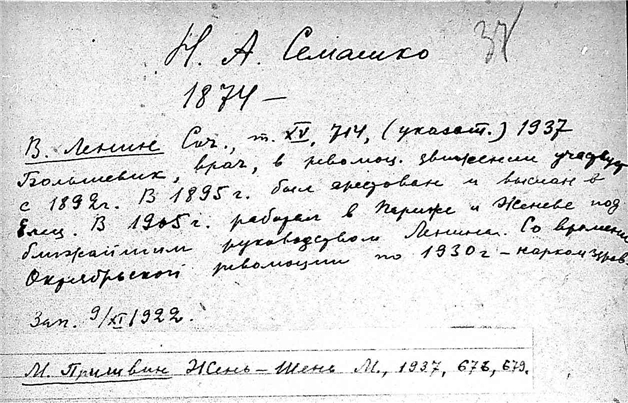 37
Н. А. Семашко
1874 —
В. Ленин Соч., т. XV, 714, (указат.) 1937
Большевик, врач, в революц. движении участвует
с 1892г. В 1895г. был арестован и выслан в
Елец. В 1905г. работал в Париже и Женеве под
ближайшим руководством Ленина. Со времени
Октябрьской революции по 1930г – наркомздрав.
Зап. 9/XI 1922.
М. Пришвин Жень – Шень М., 1937, 678, 679.